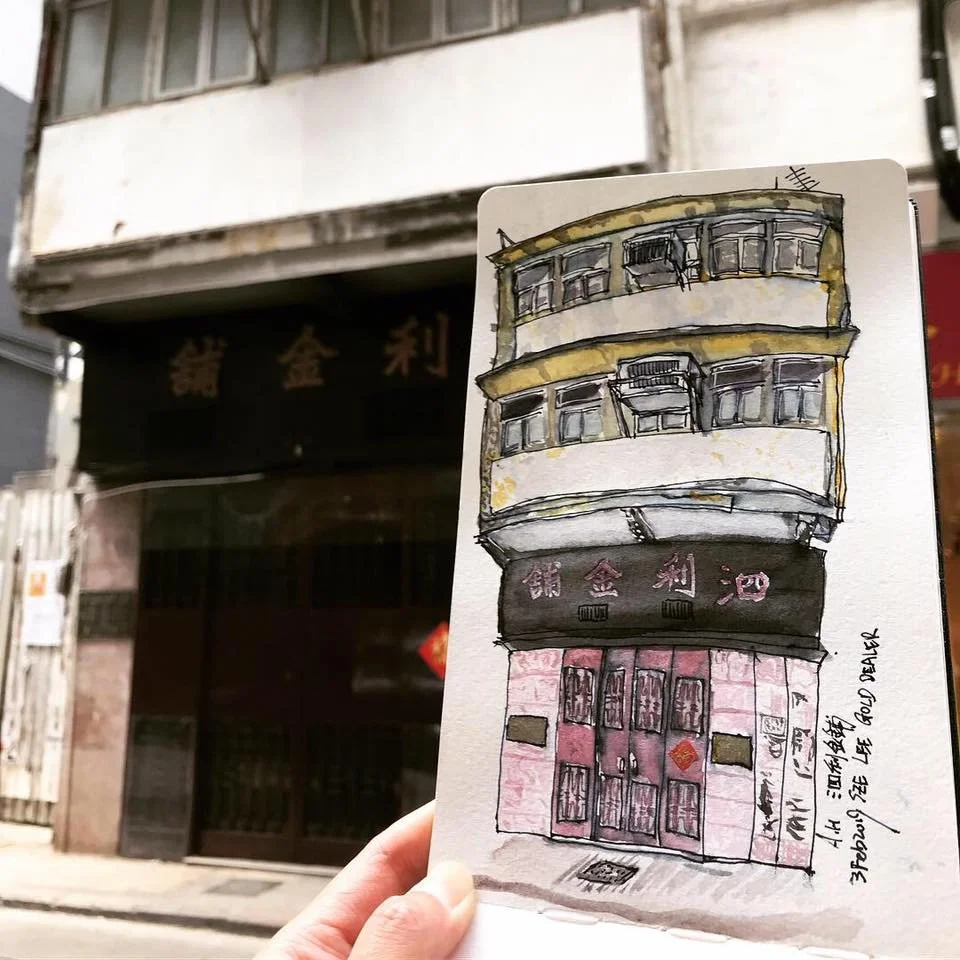 利金舖
泗利金舖
A.H 泗利金舖
3Feb2019 SZE LEE GOLD DEALER